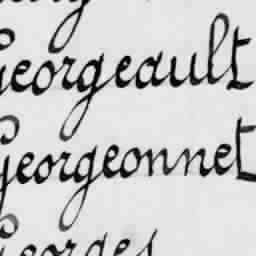 Georgeault
Georgeonnet
Georges